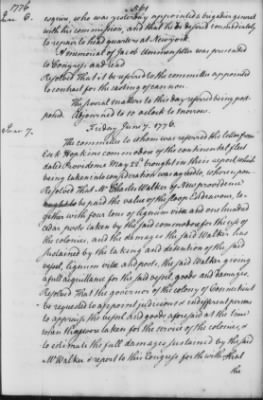 1776
June 6.
esquire, who was yesterday appointed a brigadier general
with his commission, and that he be desired immediately
to repair to head quarters at New york.
A memorial of Jacob was presented
to Congress and read
Resolved That it be referred to the committee appointed
to contract for the casting of cannon.
The several matters to this day referred being post
poned. Adjourned to 10 oclock to morrow.
Friday June 7. 1776.
June 7.
The committee to whom was referred the letter from
Esek Hopkins commodore of the continental fleet
dated Providence May 22d brought in their report which
being taken into consideration was agreed to, whereupon
Resolved That Mr Charles Walker of New providence
ought to be paid the value of the sloop Endeavour, to
gether with four tons of lignum vitæ and one hundred
cedar posts taken by the said commodore for the use of
the colonies, and the damages the said Walker has
sustained by the taking and detention of the said
vessel, lignum vitæ and posts, the said Walker giving
a full acquittance for the said vessel goods and damages.
Resolved That the governor of the colony of Connecticut
be requested to appoint judicious & indifferent persons
to appraise the vessel and goods aforesaid at the time
when they were taken for the service of the colonies, &
to estimate the full damages sustained by the said
Mr Walker & report to this Congress forthwith that
the